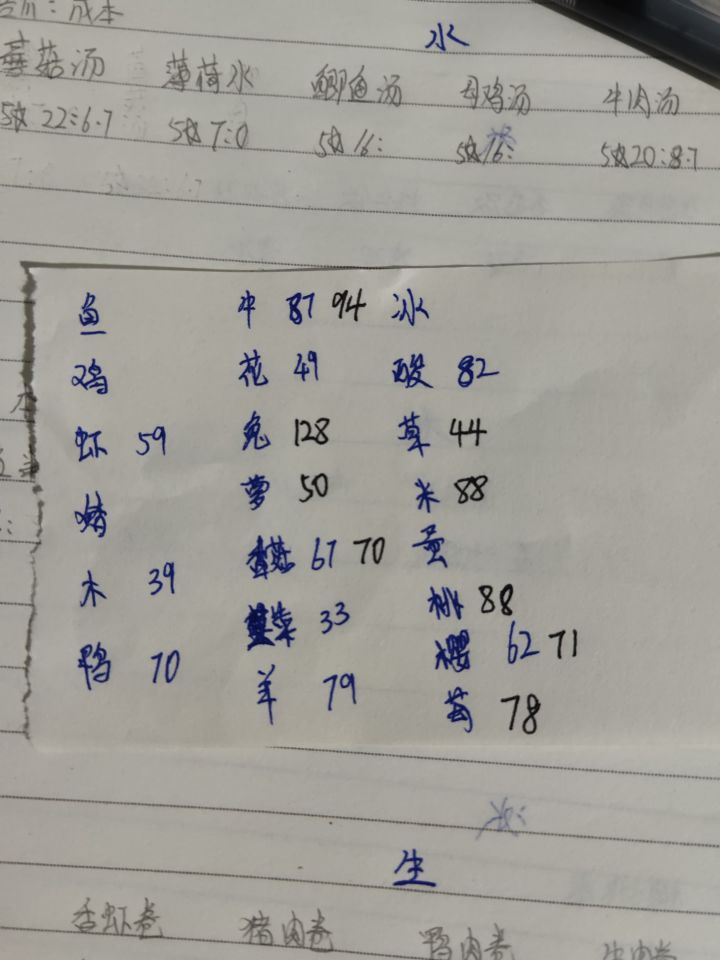 售价：成本
水
蘑菇汤 薄荷水 鲫鱼汤 母鸡汤 牛肉汤
5☆ 22:6.7 5☆ 7:0 5☆ 16: 5☆ 16: 5☆ 20:8.7
鱼 牛 87 94 冰
鸡 花 49 酸 82
虾 59 兔 128 草 44
猪 萝 50 米 88
木 39 香菇 67 70 蛋
鸭 70 33 桃 88
羊 79 樱 62 71
莓 78
生
香虾卷 猪肉卷 鸭肉卷 牛肉卷